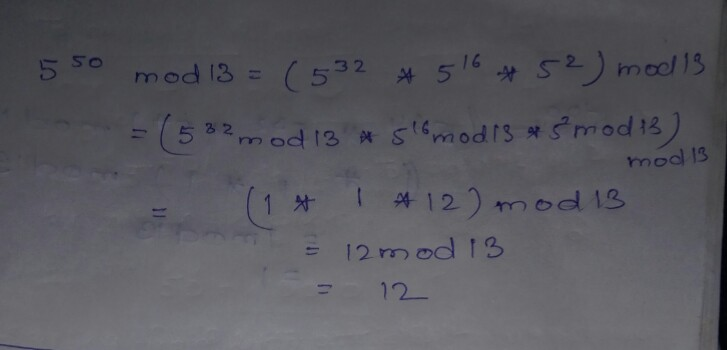 5^50 mod 13 = (5^32 * 5^16 * 5^2) mod 13
= (5^32 mod 13 * 5^16 mod 13 * 5^2 mod 13) mod 13
= (1 * 1 * 12) mod 13
= 12 mod 13
= 12